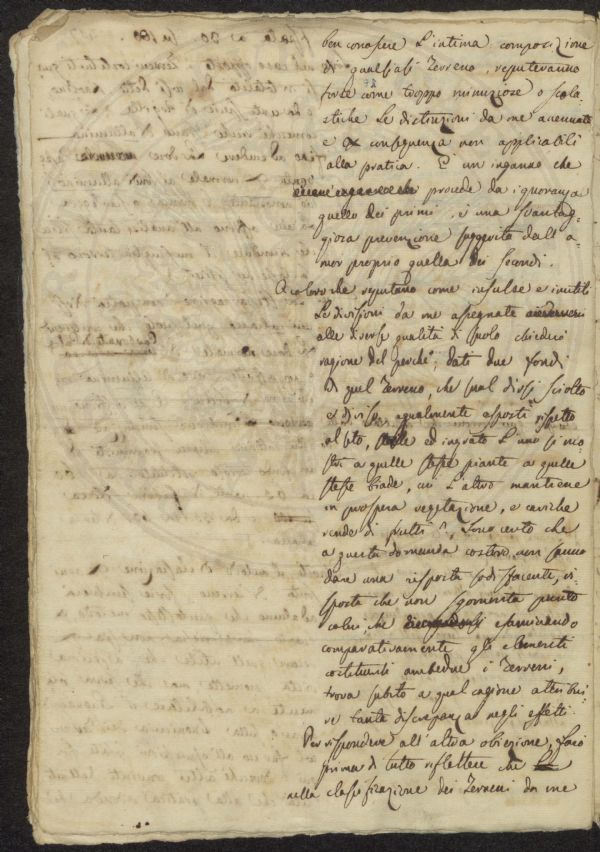 ben conoscere l'intima composizione
di qualsiasi Terreno, reputeranno
forse come troppo minuziose o scola-
stiche le distinzioni da me accennate
e conseguenza non applicabili
alla pratica. È un inganno che
procede da ignoranza
quello dei primi, è una svantag-
giosa prevenzione suggerita dall'a-
mor proprio quella dei secondi.
A coloro che reputano come insulse e inutili
le divisioni da me assegnate
alle diverse qualità di suolo chiederò
ragione del perchè, dati due fondi
di quel Terreno, che suol dirsi sciolto
e divisi, egualmente esposti rispetto
al sito, ed ingrato l'uno si mo-
stri a quelle stesse piante a quelle
stesse biade, cui l'altro mantiene
in prospera vegetazione, e cariche
rende di frutti? Sono certo che
a questa domanda costoro non sanno
dare una risposta sodisfacente, ri-
sposta che non sgomenta punto
colui, che esaminando
comparativamente gli elementi
costituenti ambedue i Terreni,
trova subito a qual cagione attribui-
re tanta discrepanza negli effetti.
Per rispondere all'altra obiezione, farò
prima di tutto riflettere che
nella classificazione dei Terreni da me